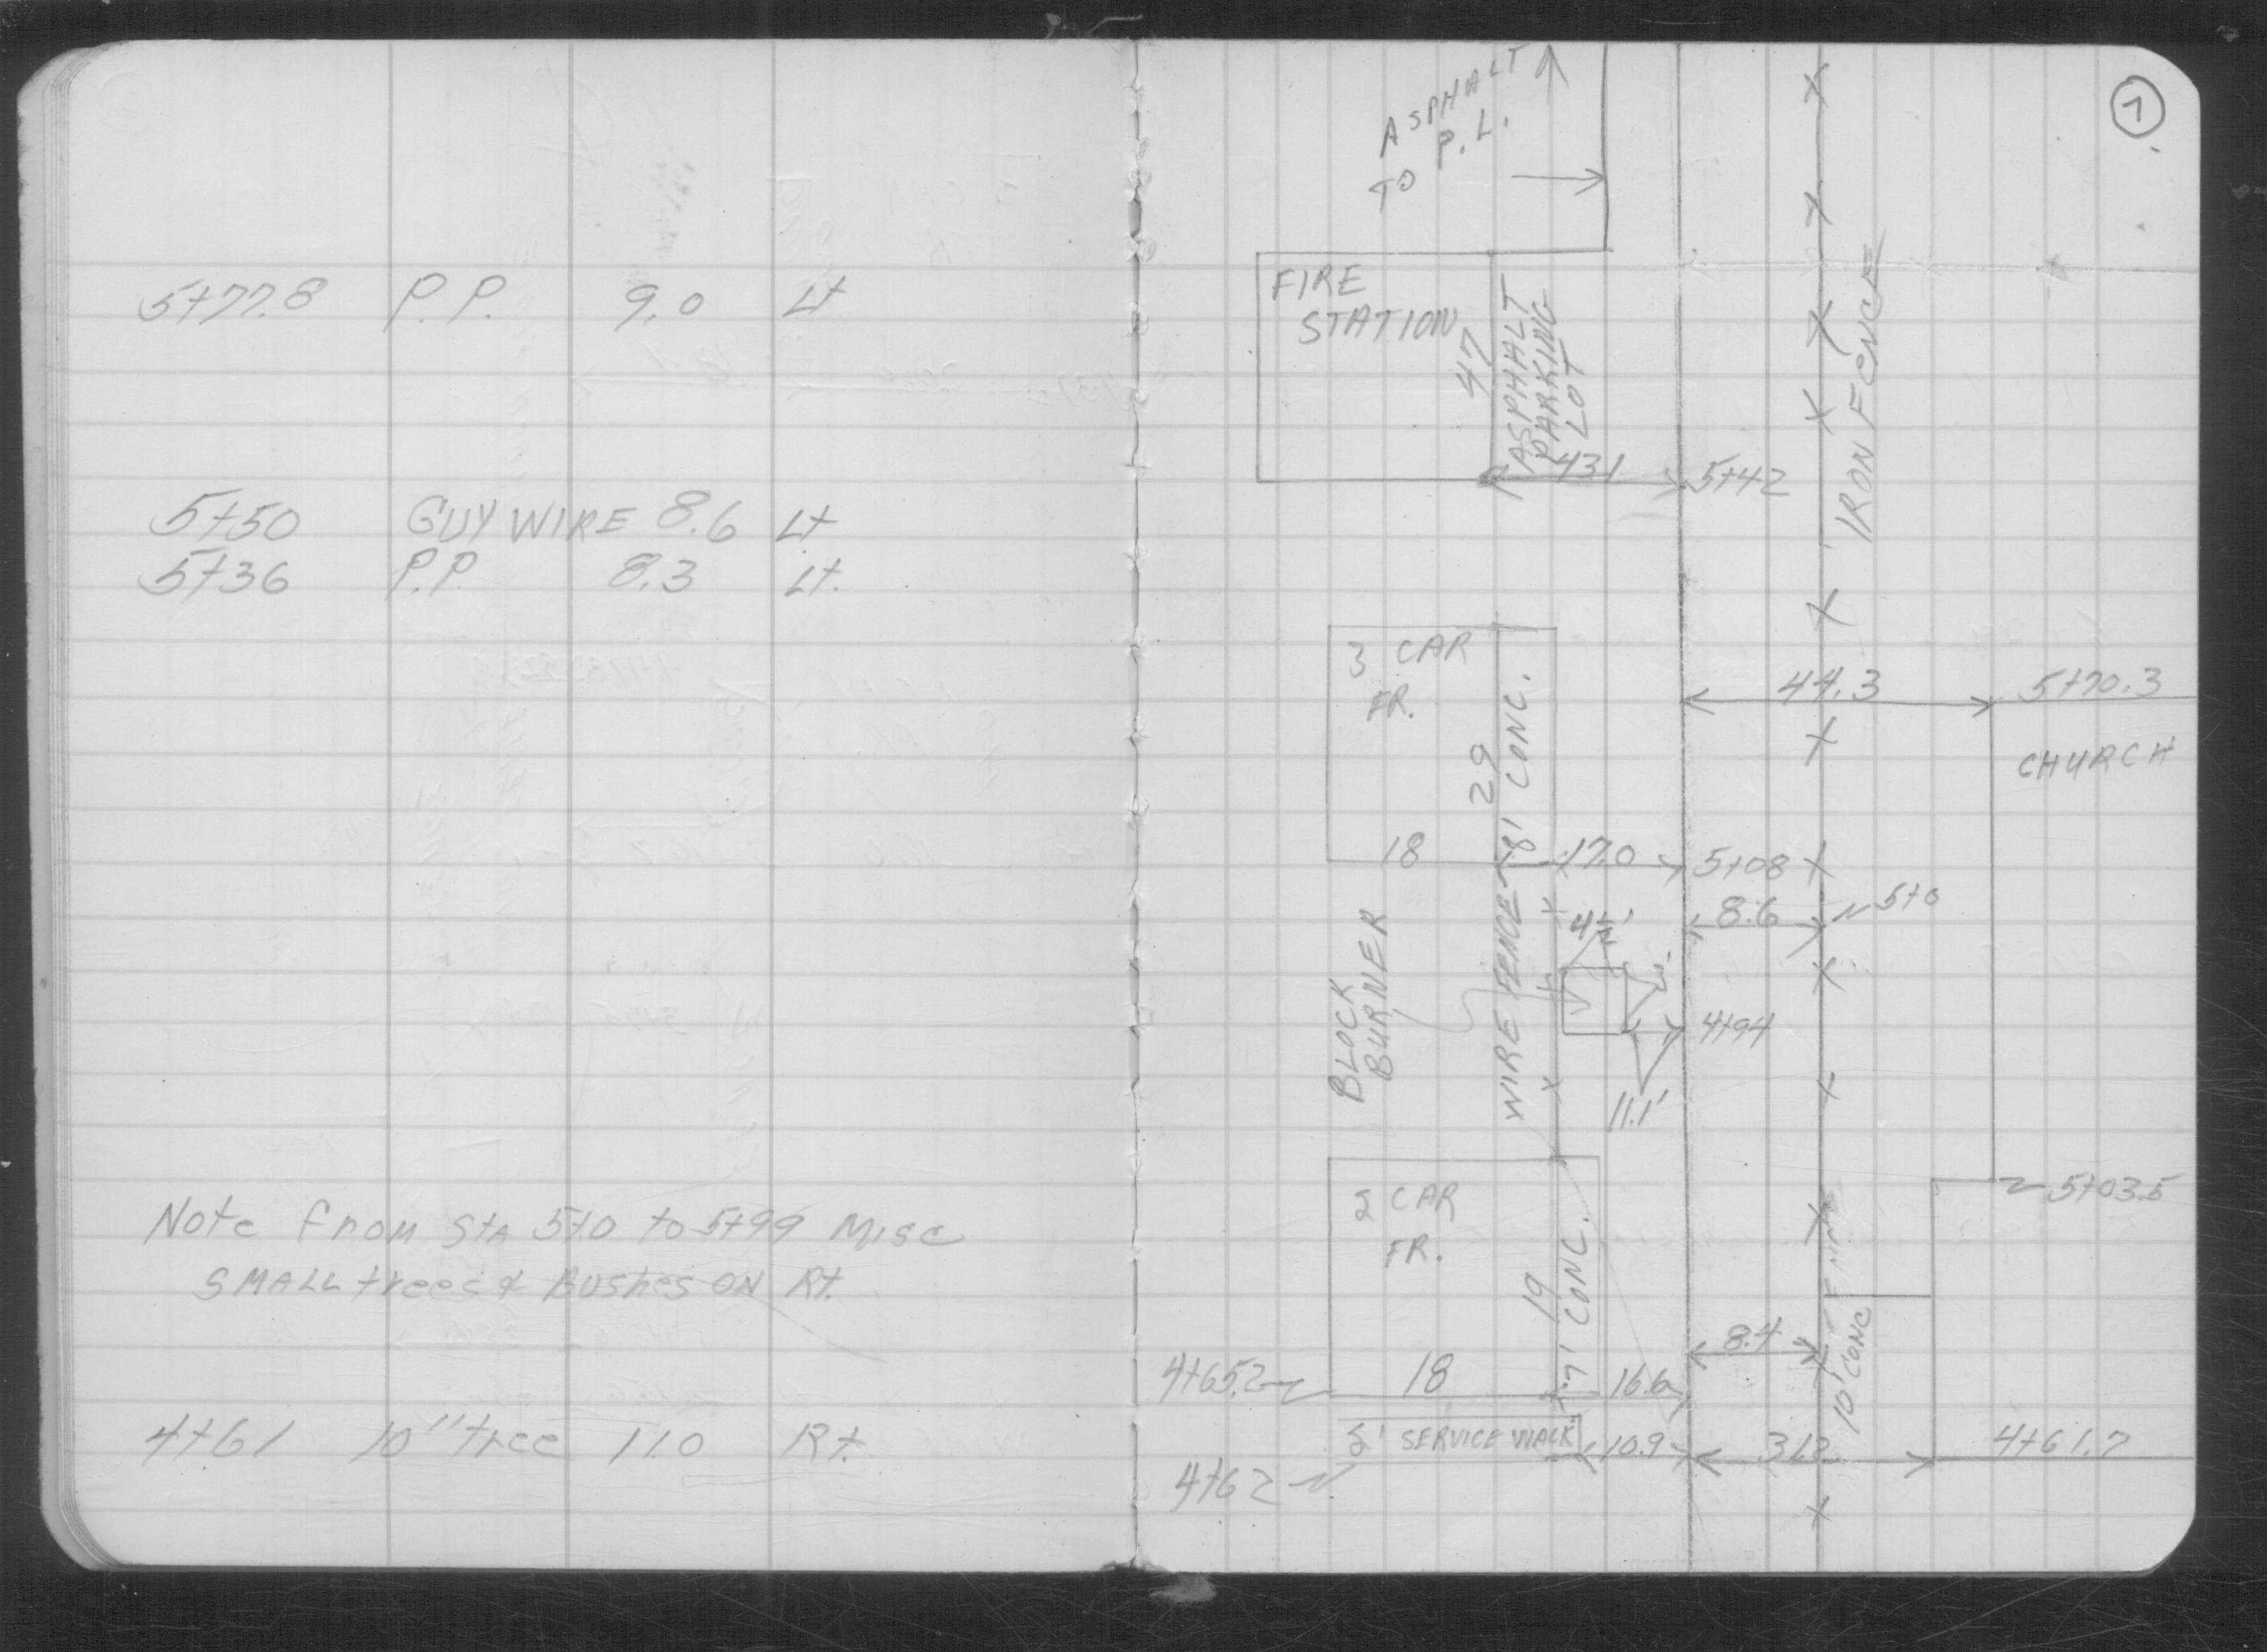 5+77.8 P.P. 9.0 Lt
5+50 GUY WIRE 8.6 Lt
5+36 P.P. 8.3 Lt.
Note from Sta 5+0 to 5+99 Misc
SMALL trees & Bushes ON Rt.
4+61 10" tree 11.0 Rt.
7
ASPHALT
TO P.L.
FIRE
STATION
47
ASPHALT
PARKING
LOT
43.1
5+42
IRON FENCE
3 CAR
FR.
29
18' CONC.
18
17.0
5+08
44.3
5+70.3
CHURCH
8.6
5+0
BLOCK
BURNER
WIRE FENCE
4½'
4+94
11.1'
5+03.5
2 CAR
FR.
19
CONC.
18
4+65.2
16.6
8.4
10' CONC
2' SERVICE WALK
10.9
31.2
4+61.7
4+62